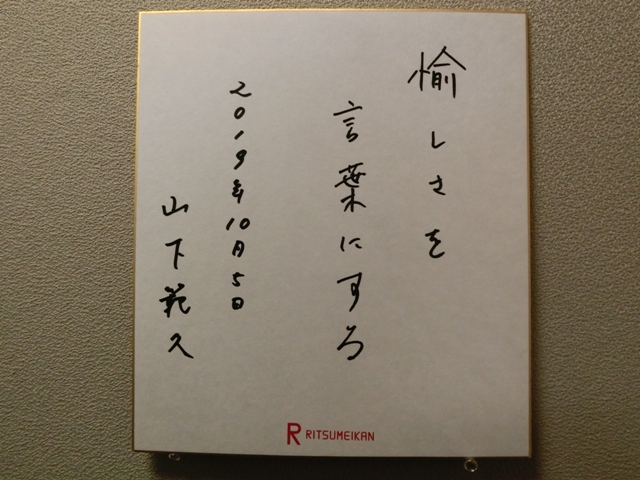 愉しさを
言葉にする
2019年10月5日
山下範久
R RITSUMEIKAN